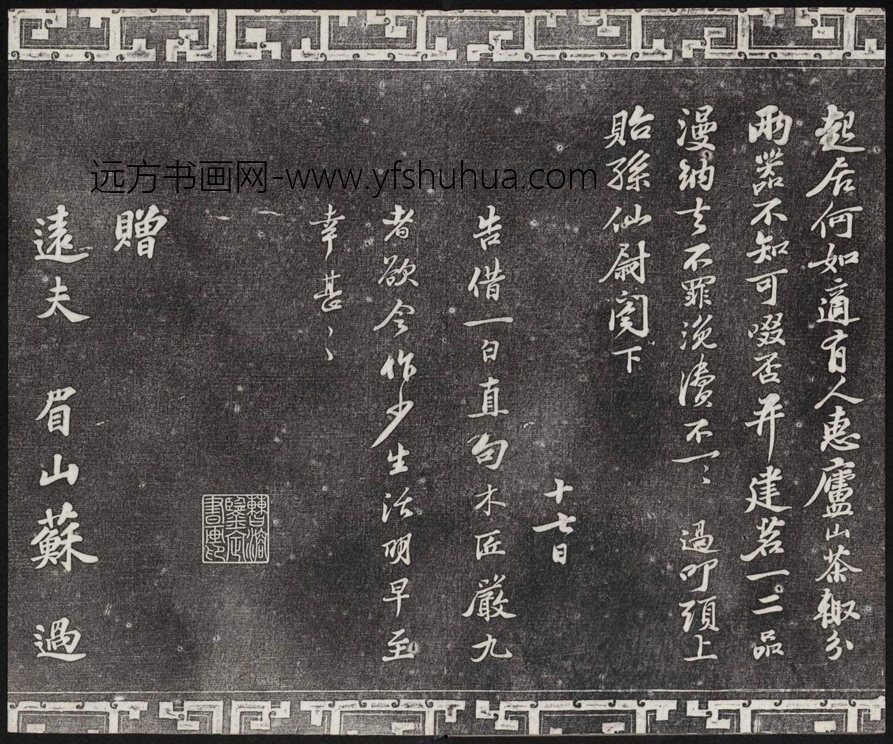 起居何如適有人惠廬山茶椒分
兩器不知可啜否并建茗一二品
漫納去不罪浼瀆不一〻 過叩頭上
貽孫仙尉閤下
十七日
告借一白直勾木匠嚴九
者欲令作少生活明早至
幸甚〻
贈
遠夫 眉山蘇過
曹溶
鑒定
書畫
远方书画网-www.yfshuhua.com